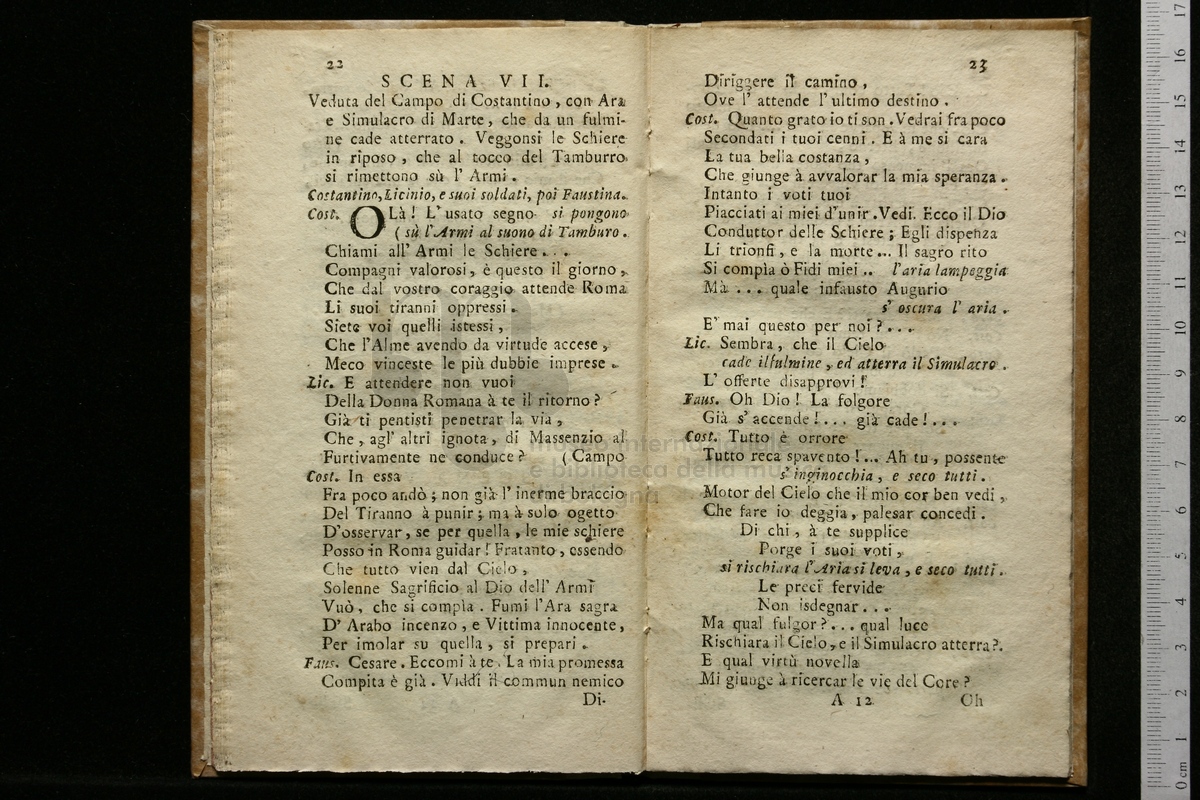 22
SCENA VII.
Veduta del Campo di Costantino, con Ara
e Simulacro di Marte, che da un fulmi-
ne cade atterrato. Veggonsi le Schiere
in riposo, che al tocco del Tamburro
si rimettono sù l'Armi.
Costantino, Licinio, e suoi soldati, poi Faustina.
Cost. OLà! L'usato segno si pongono
( sù l'Armi al suono di Tamburo.
Chiami all'Armi le Schiere...
Compagni valorosi, è questo il giorno,
Che dal vostro coraggio attende Roma
Li suoi tiranni oppressi.
Siete voi quelli istessi,
Che l'Alme avendo da virtude accese,
Meco vinceste le più dubbie imprese.
Lic. E attendere non vuoi
Della Donna Romana à te il ritorno?
Già ti pentisti penetrar la via,
Che, agl'altri ignota, di Massenzio al
Furtivamente ne conduce? (Campo
Cost. In essa
Fra poco andò; non già l'inerme braccio
Del Tiranno à punir; ma à solo ogetto
D'osservar, se per quella, le mie schiere
Posso in Roma guidar! Fratanto, essendo
Che tutto vien dal Cielo,
Solenne Sagrificio al Dio dell'Armi
Vuò, che si compìa. Fumi l'Ara sagra
D'Arabo incenzo, e Vittima innocente,
Per imolar su quella, si prepari.
Faus. Cesare. Eccomi à te. La mia promessa
Compita è già. Viddi il commun nemico
Di-
23
Diriggere il camino,
Ove l'attende l'ultimo destino.
Cost. Quanto grato io ti son. Vedrai fra poco
Secondati i tuoi cenni. E à me si cara
La tua bella costanza,
Che giunge à avvalorar la mia speranza.
Intanto i voti tuoi
Piacciati ai miei d'unir. Vedi. Ecco il Dio
Conduttor delle Schiere; Egli dispenza
Li trionfi, e la morte... Il sagro rito
Si compìa ò Fidi miei.. l'aria lampeggia
Mà... quale infausto Augurio
s'oscura l'aria.
E' mai questo per noi?...
Lic. Sembra, che il Cielo
cade il fulmine, ed atterra il Simulacro.
L'offerte disapprovi!
Faus. Oh Dio! La folgore
Già s'accende!... già cade!...
Cost. Tutto è orrore
Tutto reca spavento!... Ah tu, possente
s'inginocchia, e seco tutti.
Motor del Cielo che il mio cor ben vedi,
Che fare io deggia, palesar concedi.
Di chi, à te supplice
Porge i suoi voti,
si rischiara l'Aria si leva, e seco tutti.
Le preci fervide
Non isdegnar...
Ma qual fulgor?... qual luce
Rischiara il Cielo, e il Simulacro atterra?.
E qual virtù novella
Mi giunge à ricercar le vie del Core?
A 12
Oh
museo internazionale
e biblioteca della mu